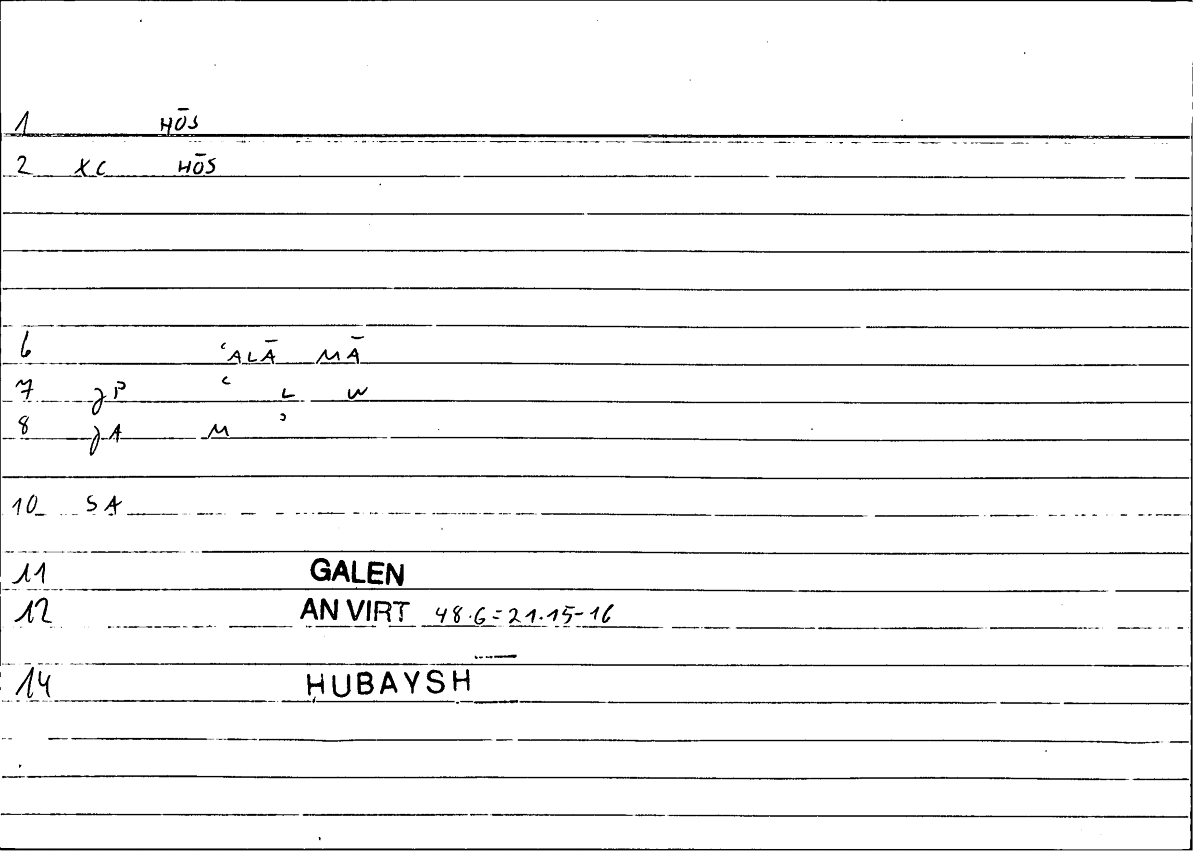 1 HŌS
2 XC HŌS
6 ʿALĀ MĀ
7 JP ʿ L W
8 JA M ʾ
10 SA
11 GALEN
12 AN VIRT 48.6=21.15-16
14 HUBAYSH